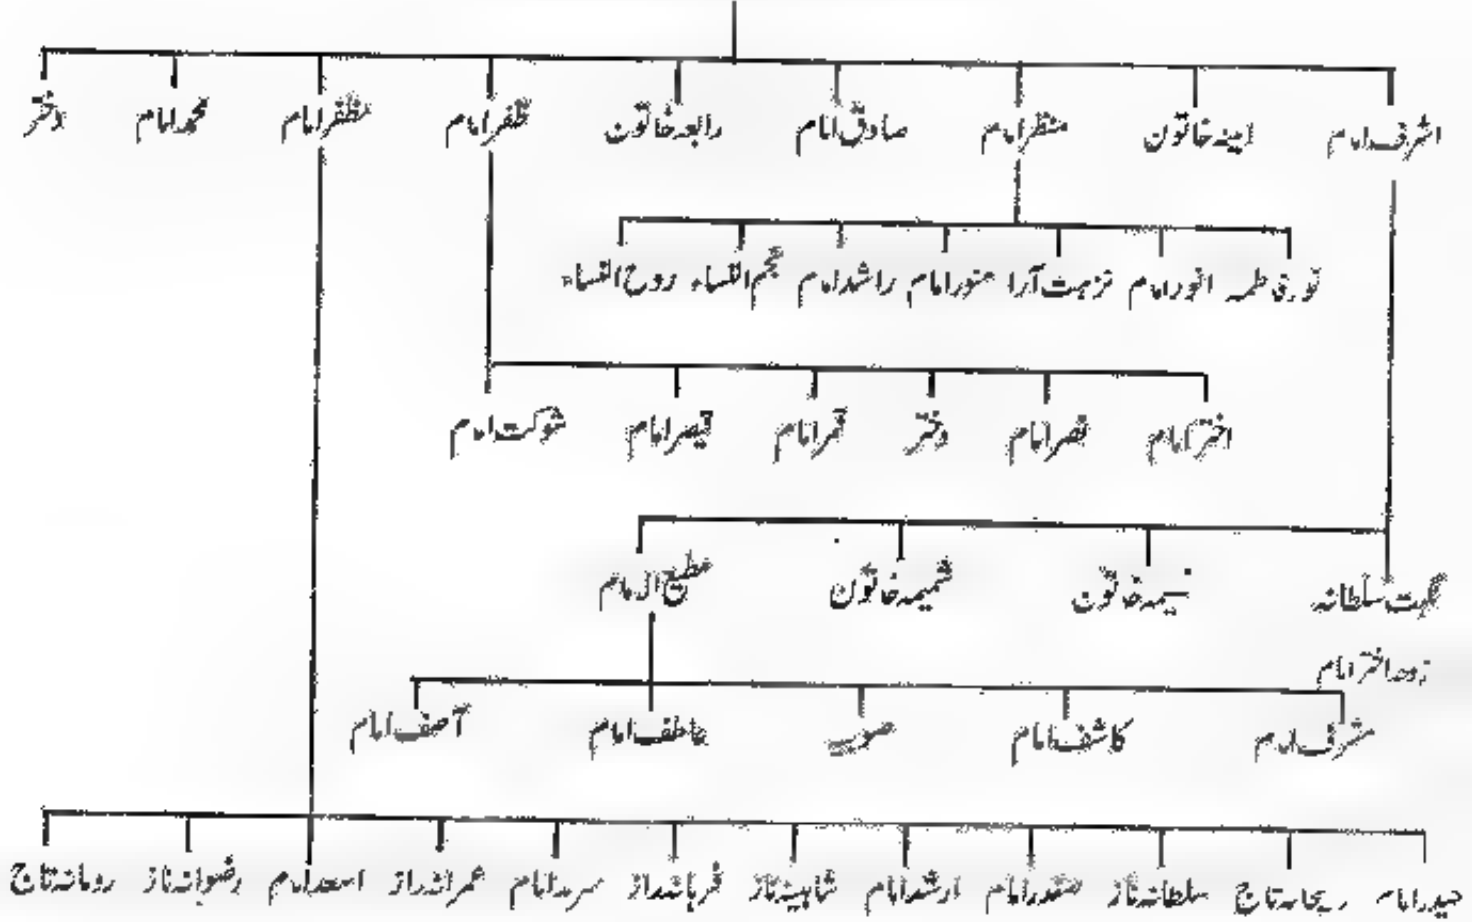 اشرف امام امینہ خاتون منظر امام صادق امام رابعہ خاتون ظفر امام مظفر امام محمد امام دختر
نوری فاطمہ انور امام نزہت آرا منور امام راشد امام نجم النساء روح النساء
اختر امام نصر امام دختر قمر امام قیصر امام شوکت امام
نگہت سلطانہ نسیمہ خاتون شمیمہ خاتون مطیع الامام
زوجہ اختر امام
مشرف امام کاشف امام صوبیہ عاطف امام آصف امام
حیدر امام ریحانہ تاج سلطانہ ناز صفدر امام ارشد امام شاہینہ ناز فرحانہ راز سرمد امام عمرانہ راز اسعد امام رضوانہ ناز رومانہ تاج